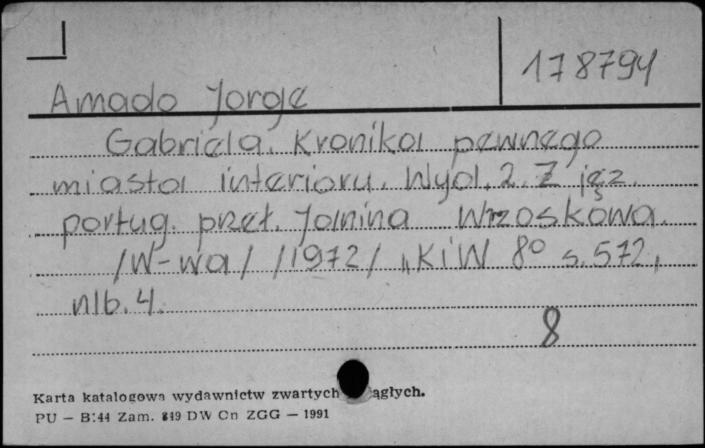 178794
Amado Jorge
Gabriela. Kronika pewnego
miasta interioru. Wyd. 2. Z jęz.
portug. przeł. Janina Wrzoskowa.
/W-wa/ /1972/ „KiW 8° s. 572,
nlb. 4.
8
Karta katalogowa wydawnictw zwartych ągłych.
PU — B:44 Zam. 849 DW Cn ZGG — 1991